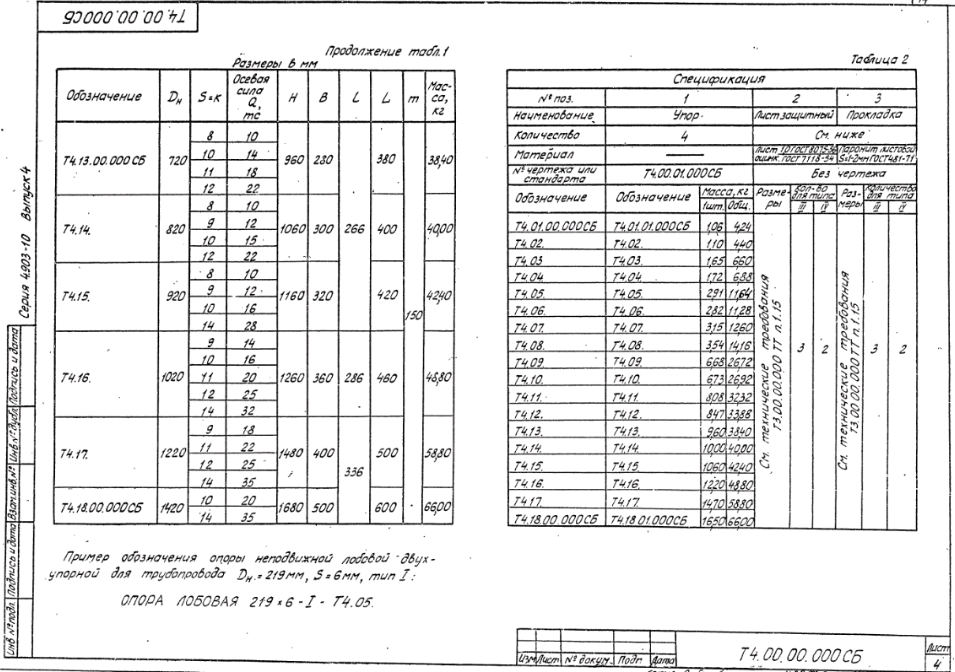 Т4.00.00.000СБ
Продолжение табл.1
Размеры в мм
Обозначение Dн S=к Осевая сила Q, тс H B l L m Масса, кг
Т4.13.00.000 СБ 720 8 10 960 230 380 38,40
10 14
11 18
12 22
Т4.14. 820 8 10 1060 300 266 400 40,00
9 12
10 15
12 22
Т4.15. 920 8 10 1160 320 420 150 42,40
9 12
10 16
14 28
Т4.16. 1020 9 14 1260 360 286 460 48,80
10 16
11 20
12 25
14 32
Т4.17. 1220 9 18 1480 400 336 500 58,80
11 22
12 25
14 35
Т4.18.00.000СБ 1420 10 20 1680 500 600 66,00
14 35
Пример обозначения опоры неподвижной лобовой двух-
упорной для трубопровода Dн = 219мм, S = 6мм, тип I:
ОПОРА ЛОБОВАЯ 219 × 6 - I - Т4.05.
Таблица 2
Спецификация
№ поз. 1 2 3
Наименование Упор Лист защитный Прокладка
Количество 4 См. ниже
Материал — Паронит листовой
№ чертежа или стандарта Т4.00.01.000СБ Без чертежа
Обозначение Обозначение Масса, кг Размеры Кол-во для типа Размеры Количество для типа
1шт. Общ. III IV III IV
Т4.01.00.000СБ Т4.01.01.000СБ 1,06 4,24
Т4.02. Т4.02. 1,10 4,40
Т4.03 Т4.03. 1,65 6,60
Т4.04 Т4.04. 1,72 6,88
Т4.05. Т4.05. 2,91 11,64
Т4.06. Т4.06. 2,82 11,28
Т4.07. Т4.07. 3,15 12,60
Т4.08. Т4.08. 3,54 14,16 3 2 3 2
Т4.09 Т4.09. 6,68 26,72
Т4.10. Т4.10. 6,73 26,92
Т4.11. Т4.11. 8,08 32,32
Т4.12. Т4.12. 8,47 33,88
Т4.13. Т4.13. 9,60 38,40
Т4.14. Т4.14. 10,00 40,00
Т4.15. Т4.15 10,60 42,40
Т4.16. Т4.16. 12,20 48,80
Т4.17. Т4.17. 14,70 58,80
Т4.18.00.000СБ Т4.18.01.000СБ 16,50 66,00
См. технические требования
Т3.00.00.000 ТТ п.1.15
См. технические требования
Т3.00.00.000 ТТ п.1.15
Серия 4.903-10 Выпуск 4
Инв № подл. Подпись и дата Взам.инв.№ Инв.№ дубл. Подпись и дата
Изм. Лист № докум. Подп. Дата
Т4.00.00.000СБ
Лист
4